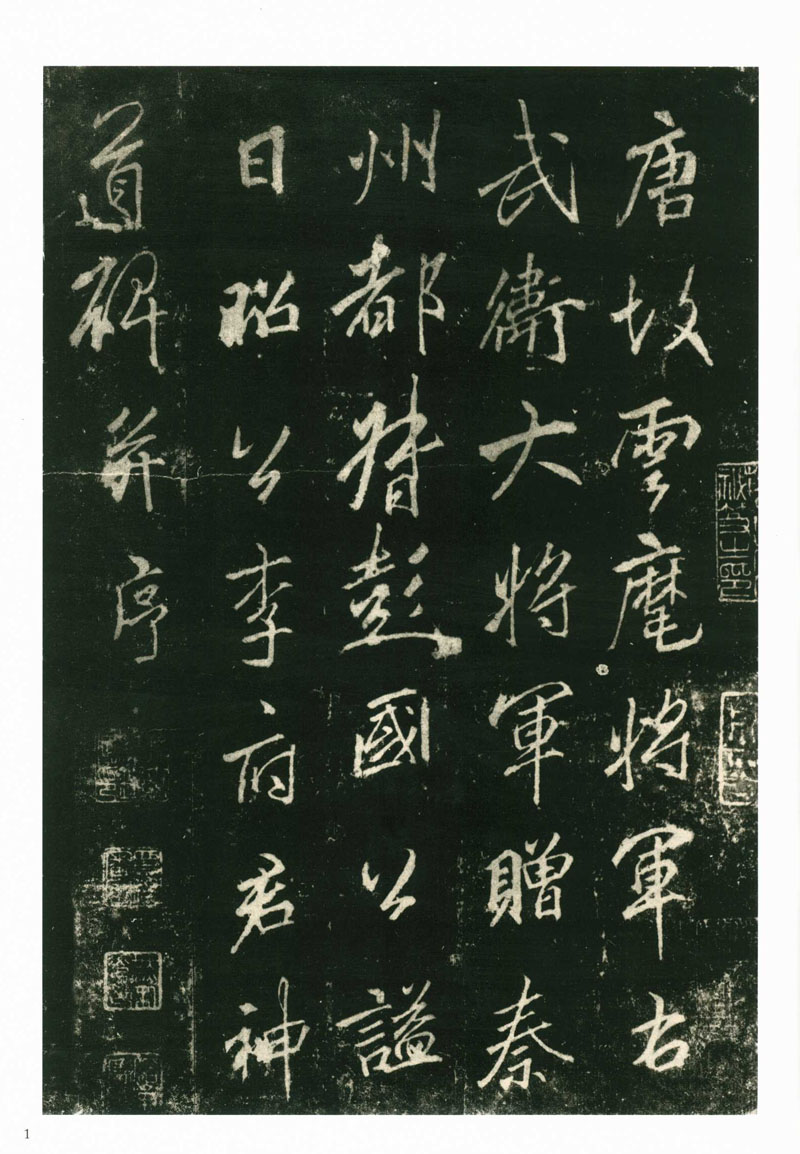 唐故雲麾將軍右
武衛大將軍贈秦
州都督彭國公謚
曰昭公李府君神
道碑并序
1